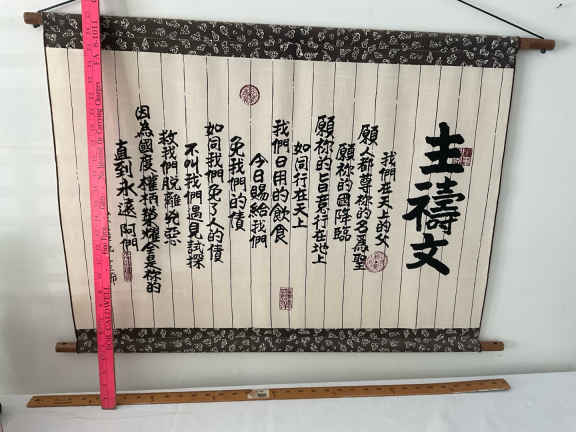 主禱文
我們在天上的父
願人都尊祢的名為聖
願祢的國降臨
願祢的旨意行在地上
如同行在天上
我們日用的飲食
今日賜給我們
免我們的債
如同我們免了人的債
不叫我們遇見試探
救我們脫離兇惡
因為國度權柄榮耀全是祢的
直到永遠阿們